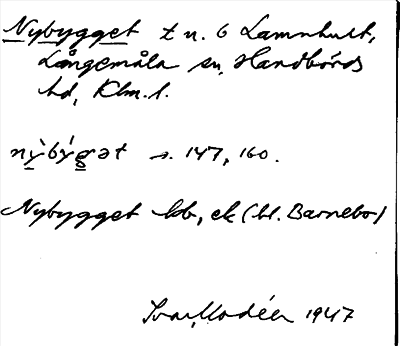 Nybygget t u. 6 Lammhult,
Långemåla sn, Handbörds
hd, Klm. l.
nỳbýgət s. 147, 160.
Nybygget bb, ek (bl. Barnebo)
Ivar Modéer 1947